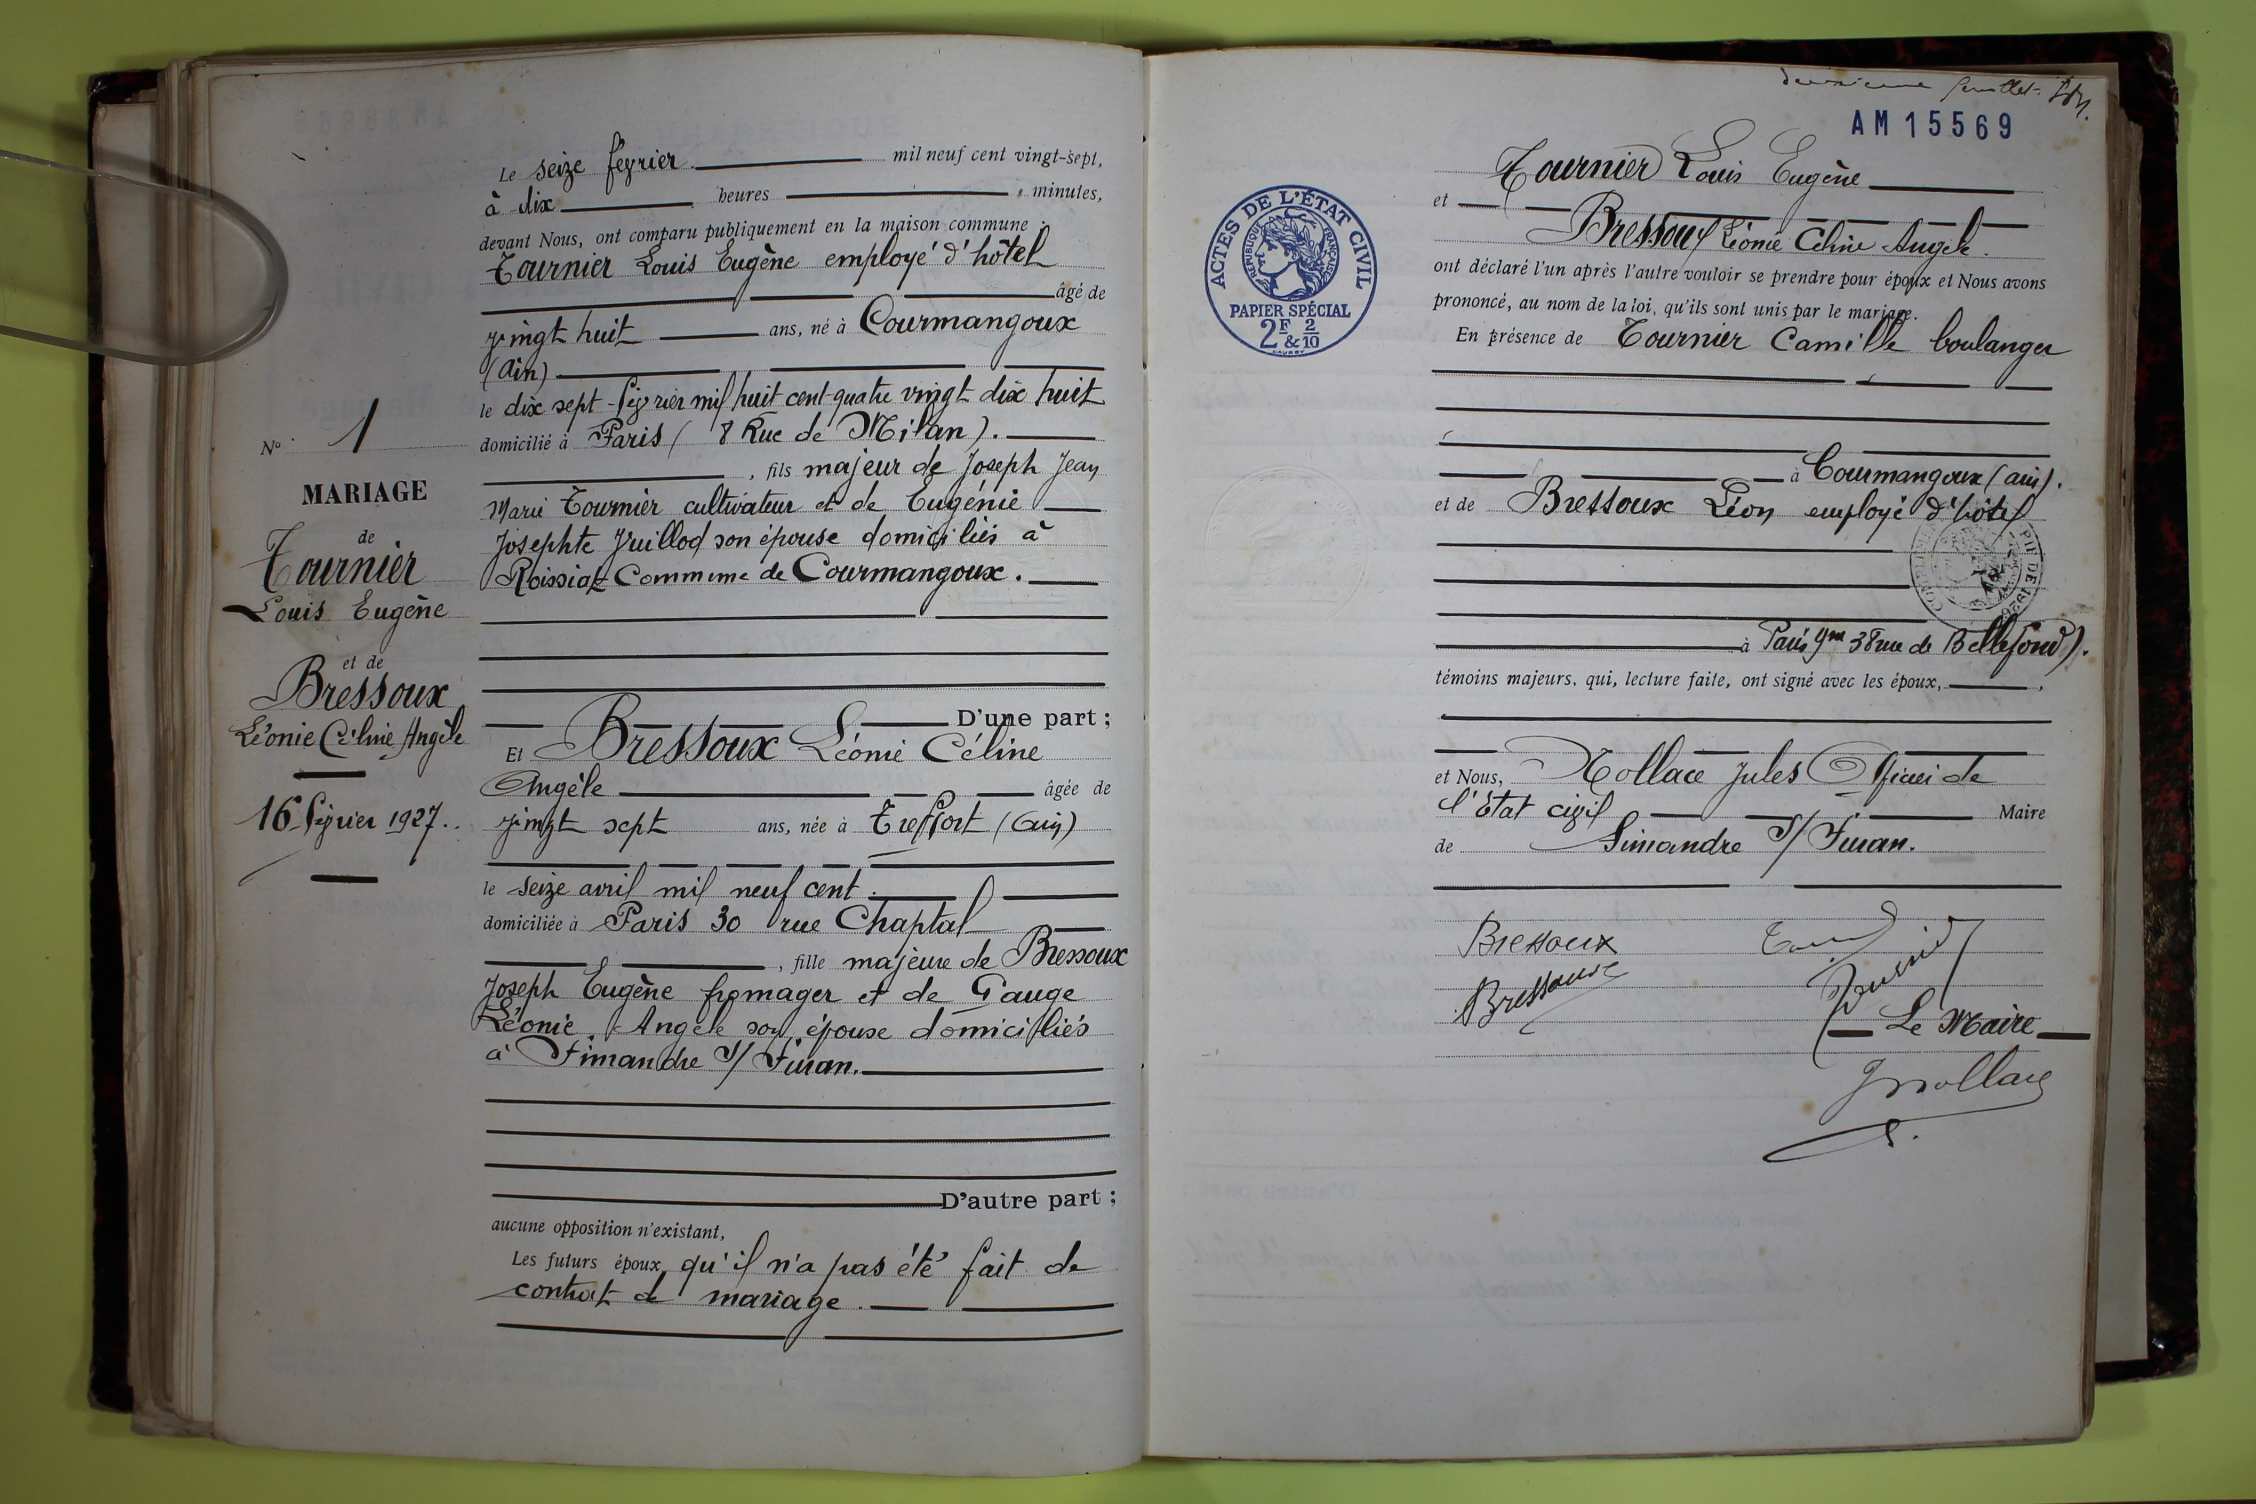 N° 1
MARIAGE
de
Tournier
Louis Eugène
et de
Bressoux
Léonie Céline Angèle
16 février 1927.
Le seize février mil neuf cent vingt-sept,
à dix heures minutes,
devant Nous, ont comparu publiquement en la maison commune :
Tournier Louis Eugène employé d'hôtel
âgé de
vingt huit ans, né à Courmangoux
(Ain)
le dix sept février mil huit cent quatre vingt dix huit
domicilié à Paris (8 Rue de Milan).
, fils majeur de Joseph Jean
Marie Tournier cultivateur et de Eugénie
Josephte Juillod son épouse domiciliés à
Roissiat Commune de Courmangoux.
D'une part ;
Et Bressoux Léonie Céline
Angèle âgée de
vingt sept ans, née à Treffort (Ain)
le seize avril mil neuf cent.
domiciliée à Paris 30 rue Chaptal
, fille majeure de Bressoux
Joseph Eugène fromager et de Gauge
Léonie Angèle son épouse domiciliés
à Simandre s/ Suran.
D'autre part ;
aucune opposition n'existant,
Les futurs époux qu'il n'a pas été fait de
contrat de mariage.
deuxième feuillet
AM 15569
ACTES DE L'ÉTAT CIVIL
RÉPUBLIQUE FRANÇAISE
PAPIER SPÉCIAL
2F & 2/10
Tournier Louis Eugène
et
Bressoux Léonie Céline Angèle.
ont déclaré l'un après l'autre vouloir se prendre pour époux et Nous avons
prononcé, au nom de la loi, qu'ils sont unis par le mariage.
En présence de Tournier Camille boulanger
à Courmangoux (Ain).
et de Bressoux Léon employé d'hôtel
à Paris 9me 38 rue de Bellefond).
témoins majeurs, qui, lecture faite, ont signé avec les époux,
et Nous, Mollace Jules Officier de
l'Etat civil Maire
de Simandre s/ Suran.
Bressoux
Bressoux
Le Maire
JMollace